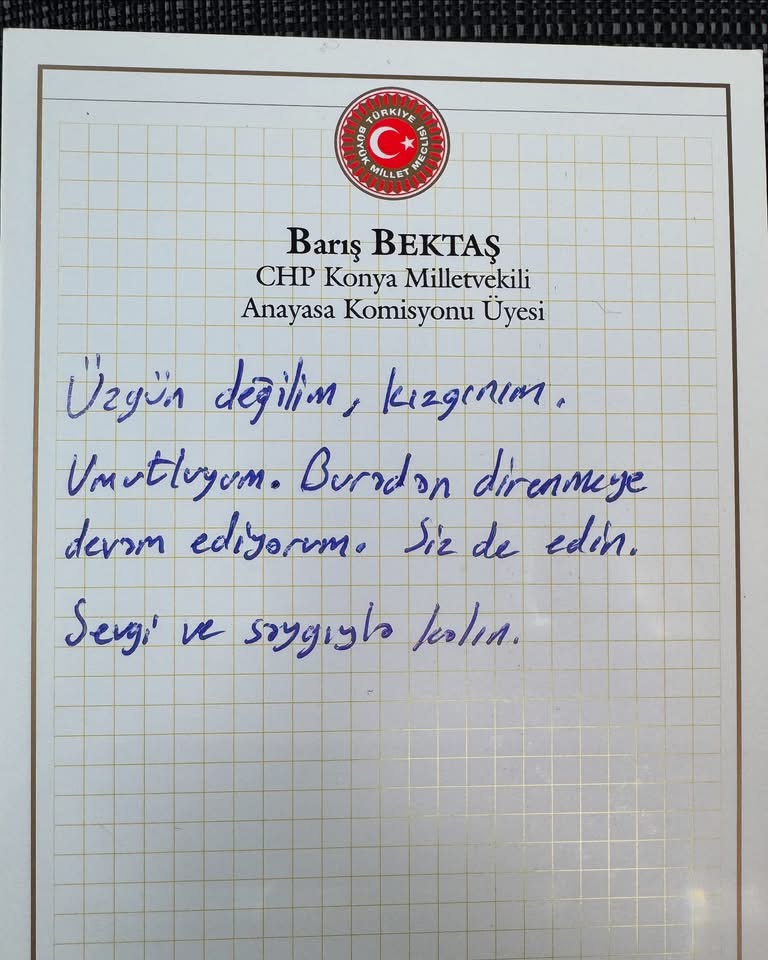 TÜRKİYE BÜYÜK MİLLET MECLİSİ
Barış BEKTAŞ
CHP Konya Milletvekili
Anayasa Komisyonu Üyesi
Üzgün değilim, kızgınım.
Umutluyum. Buradan direnmeye
devam ediyorum. Siz de edin.
Sevgi ve saygıyla kalın.